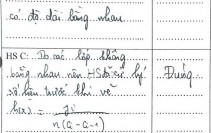 có độ dài bằng nhau
HS C: Do các lớp không
bằng nhau nên HS đã xử lý
số liệu trước khi vẽ
n(aᵢ - aᵢ₋₁)
Đúng